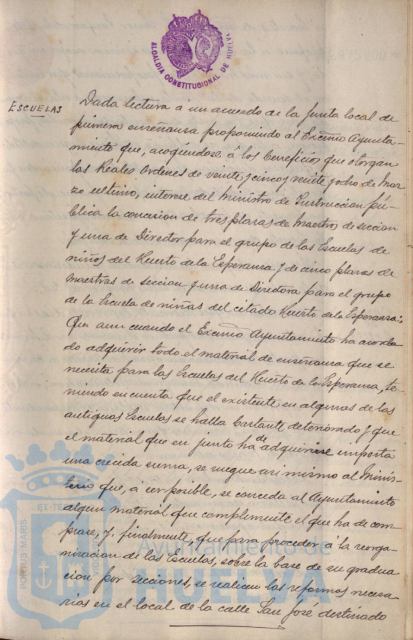 ALCALDIA CONSTITUCIONAL DE HUELVA
ESCUELAS
Dada lectura á un acuerdo de la Junta local de
primera enseñanza proponiendo al Excmo Ayunta-
miento que, acogiéndose á los beneficios que otorgan
las Reales órdenes de veinte y cinco y veinte y ocho de Mar-
zo último, interese del Ministro de Instruccion pú-
blica la concesion de tres plazas de Maestros de seccion
y una de Director para el grupo de las Escuelas de
niños del Huerto de la Esperanza, y de cinco plazas de
Maestras de seccion y una de Directora para el grupo
de la Escuela de niñas del citado Huerto de la Esperanza:
Que aun cuando el Excmo Ayuntamiento ha acorda-
do adquirir todo el material de enseñanza que se
necesita para las Escuelas del Huerto de la Esperanza, te-
niendo en cuenta que el existente en algunas de las
antiguas Escuelas se halla bastante deteriorado y que
el material que en junto ha de adquirirse importa
una crecida suma, se ruegue asi mismo al Minis-
terio que, a ser posible, se conceda al Ayuntamiento
algun material que complemente el que ha de com-
prarse, y, finalmente, que para proceder á la reorga-
nizacion de las Escuelas, sobre la base de su gradua-
cion por secciones, se realicen las reformas necesa-
rias en el local de la calle San José destinado
Ayuntamiento de
HUELVA
PORTUS MARIS